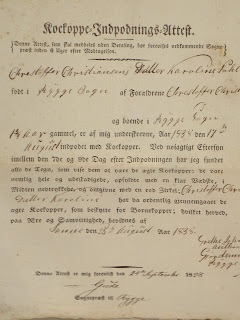 Kockoppe-Indpodnings-Attest.
(Denne Attest, som skal meddeles uden Betaling, bør forevises vedkommende Sogne-
præst inden 8 Uger efter Modtagelsen.)
Christoffer Christiansens Datter Karoline
født i Agger Sogn af Forældrene Christoffer
og boende i Sogn
Aar gammel, er af mig underskrevne, Aar 1838 den 17
August indpodet med Kockopper. Ved nøiagtigt Eftersyn
imellem den 7de og 9de Dag efter Indpodningen har jeg fundet
alle de Tegn, som vise dem at være de ægte Kockopper; de vare
nemlig hele og ubeskadigede, opfyldte af en klar Vædske, i
Midten nedtrykkede, og omgivne med en rød Zirkel;
Datter Karoline har da ordentlig gjennemgaaet de
ægte Kockopper, som beskytte for Børnekopper; hvilket herved,
paa Ære og Samvittighed, bevidnes af
den 25 August Aar 1838.
Denne Attest er mig forevist den 24 September 1838
Sognepræst til Agger